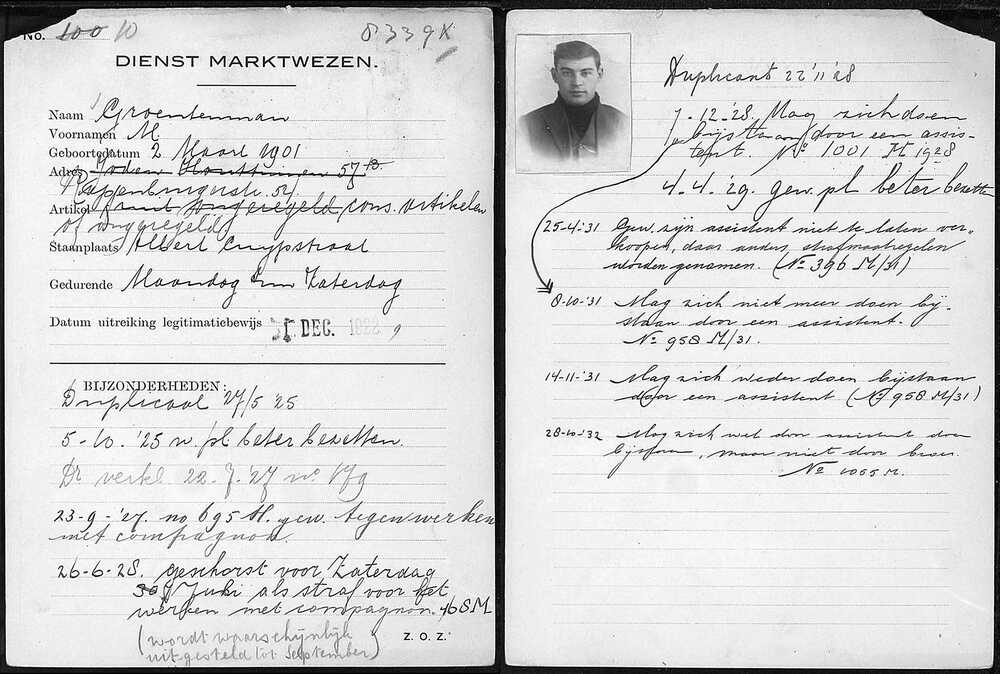 No. 100 10 8339K
DIENST MARKTWEZEN.
Naam Groenteman
Voornamen M
Geboortedatum 2 Maart 1901
Adres Joden Houttuinen 57 B.
Rapenburgerstr. 54.
Artikel fruit ongeregeld cons. artikelen
of ongeregeld
Staanplaats Albert Cuypstraat
Gedurende Maandag t/m Zaterdag
Datum uitreiking legitimatiebewijs DEC. 1922
BIJZONDERHEDEN:
Duplicaat 27/5 '25
5-10.'25 w. pl beter bezetten.
Dr verkl. 22-7-'27 no
23-9-'27. no 695 M. gew. tegen werken
met compagnon.
26-6-28. geschorst voor Zaterdag
30 Juni als straf voor het
werken met compagnon. 468M
(wordt waarschijnlijk
uitgesteld tot September)
Z.O.Z.
Duplicaat 22'11'28
7-12-'28. Mag zich doen
bijstaan door een assis-
tent. No 1001 M 1928
4-4-'29. gew. pl beter bezetten
25-4-'31 Gew. zijn assistent niet te laten ver-
koopen, daar anders strafmaatregelen
worden genomen. (No 396 M/31)
8-10-'31 Mag zich niet meer doen bij-
staan door een assistent.
No 958 M/31.
14-11-'31 Mag zich weder doen bijstaan
door een assistent (No 958 M/31)
28-10-'32 Mag zich wel door assistent doen
bijstaan, maar niet door broer.
No 1055 M.